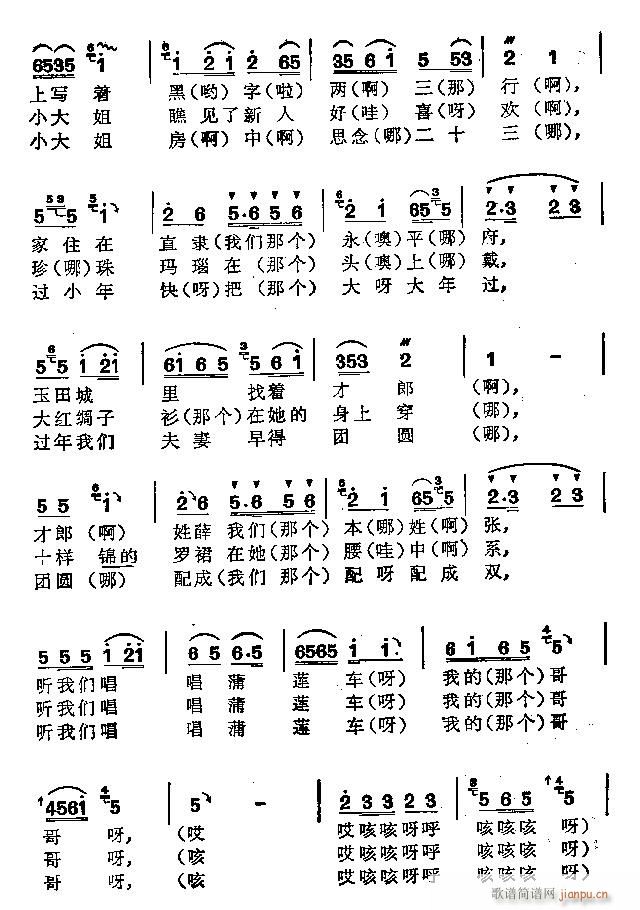 6535 1 | 1 21 2 65 | 35 61 5 53 | 2 1 |
上写着 黑(哟)字(啦) 两(啊)三(那) 行(啊),
小大姐 瞧见了新人 好(哇)喜(呀) 欢(啊),
小大姐 房(啊)中(啊) 思念(哪)二十 三(哪),
5 5 1 | 2 6 5·6 5 6 | 2 1 65 5 | 2·3 2 3 |
家住在 直隶(我们那个) 永(噢)平(哪) 府,
珍(哪)珠 玛瑙在(那个) 头(噢)上(哪) 戴,
过小年 快(呀)把(那个) 大呀大年 过,
5 5 1 21 | 61 6 5 5 6 1 | 353 2 | 1 - |
玉田城 里 找着 才郎 (啊),
大红绸子 衫(那个)在她的 身上穿 (哪),
过年我们 夫妻早得 团圆 (哪),
5 5 1 | 2 6 5·6 5 6 | 2 1 65 5 | 2·3 2 3 |
才郎(啊) 姓薛我们(那个) 本(哪)姓(啊) 张,
十样锦的 罗裙在她(那个) 腰(哇)中(啊) 系,
团圆(哪) 配成(我们那个) 配呀配成 双,
5 5 5 1 21 | 6 5 6·5 | 6565 1 1 | 6 1 6 5 5 |
听我们唱 唱蒲 莲车(呀) 我的(那个)哥
听我们唱 唱蒲 莲车(呀) 我的(那个)哥
听我们唱 唱蒲 莲车(呀) 我的(那个)哥
4561 5 | 5 - | 2 3 3 2 3 | 5 6 5 5 |
哥呀, (哎 哎咳咳呀呼 咳咳咳呀)
哥呀, (咳 哎咳咳呀呼 咳咳咳呀)
哥呀, (咳 哎咳咳呀呼 咳咳咳呀)
歌谱简谱网 jianpu.cn